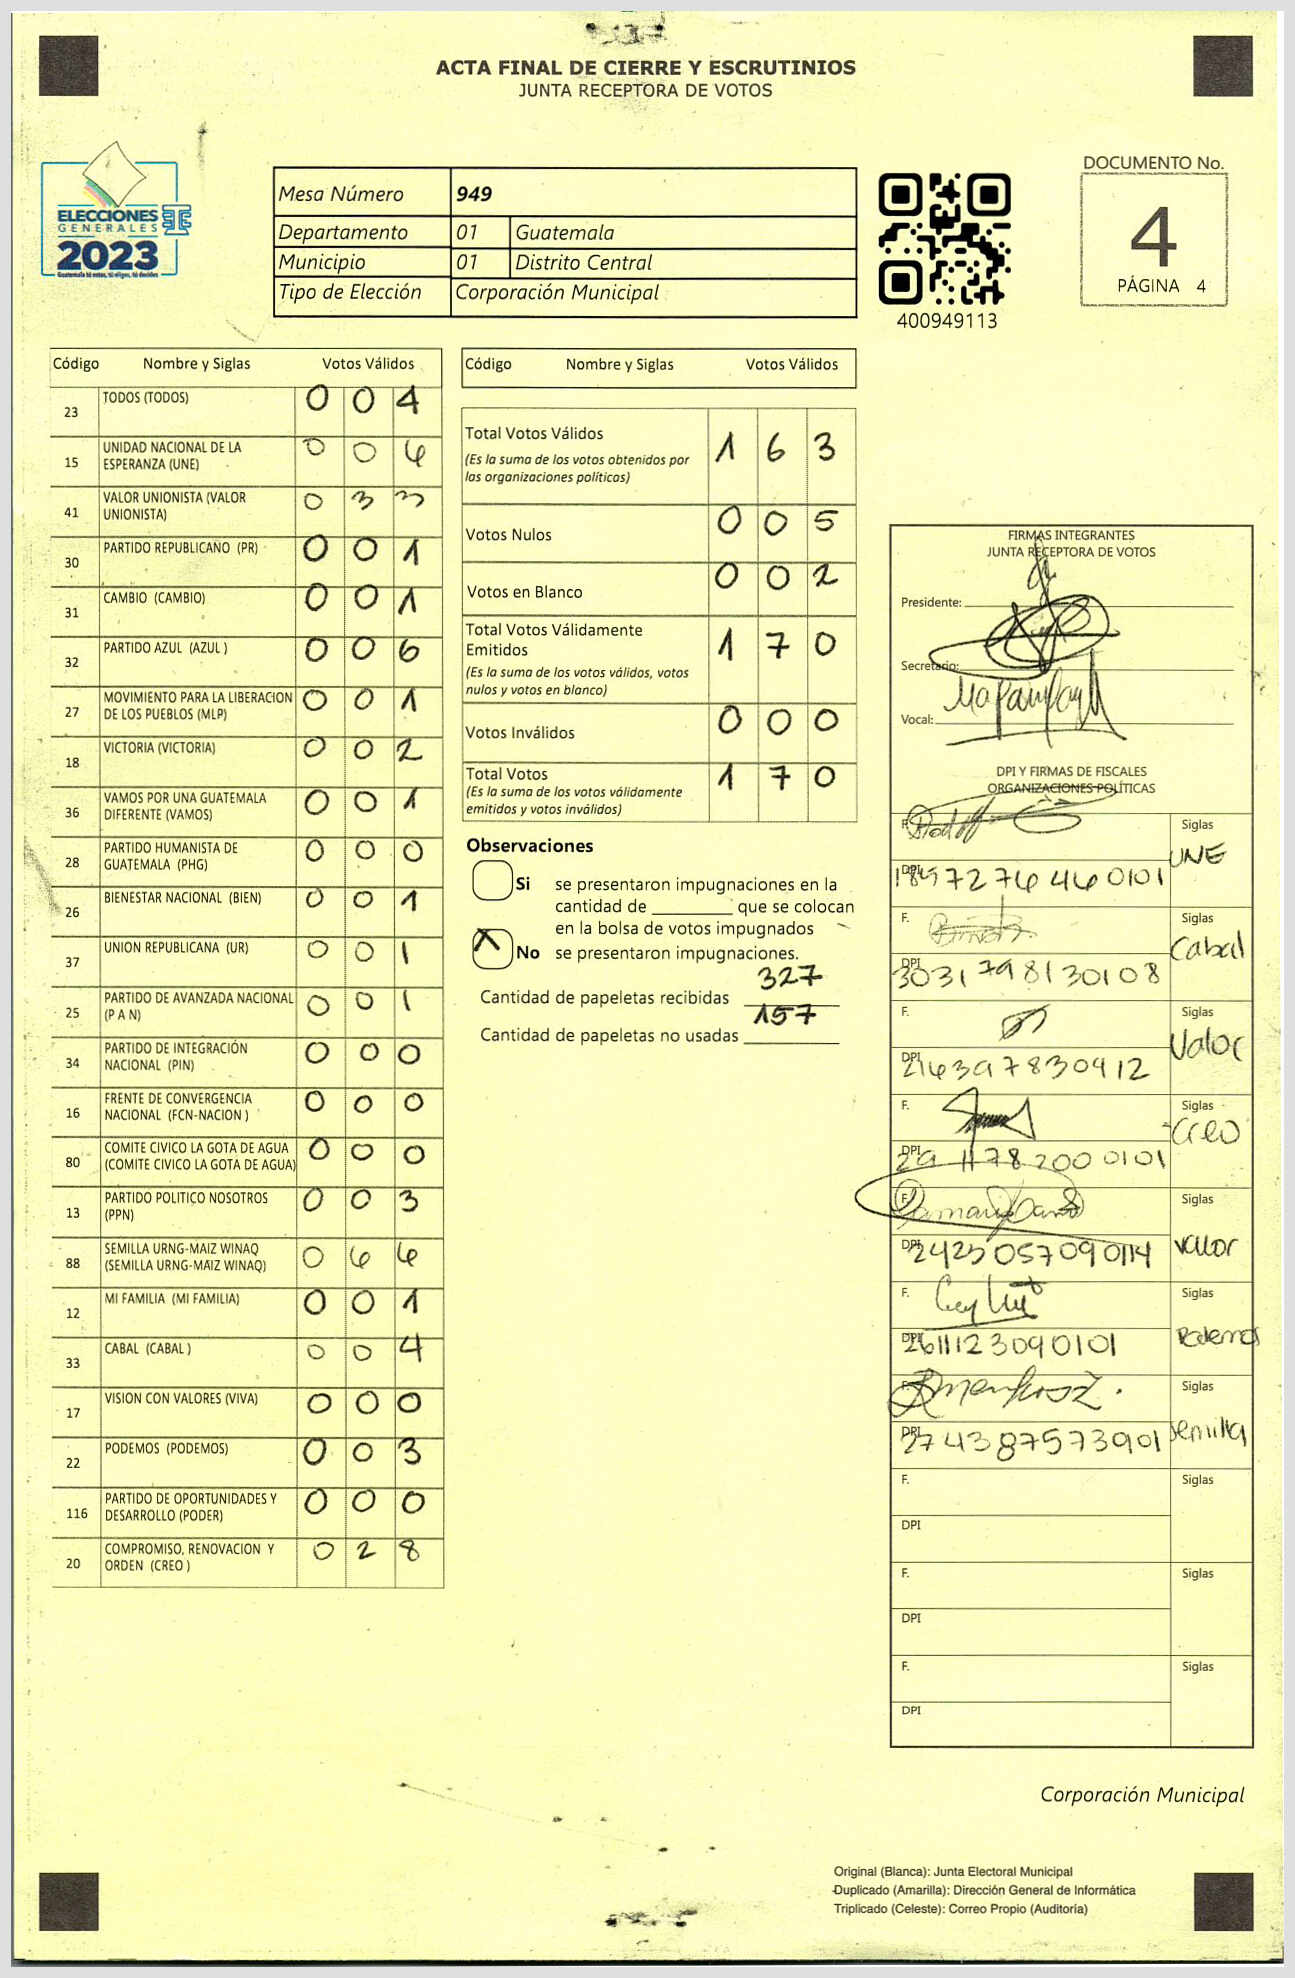 ACTA FINAL DE CIERRE Y ESCRUTINIOS
JUNTA RECEPTORA DE VOTOS
ELECCIONES
GENERALES
2023
Guatemala tú votas, tú eliges, tú decides
Mesa Número 949
Departamento 01 Guatemala
Municipio 01 Distrito Central
Tipo de Elección Corporación Municipal
400949113
DOCUMENTO No.
4
PÁGINA 4
Código Nombre y Siglas Votos Válidos
23 TODOS (TODOS) 0 0 4
15 UNIDAD NACIONAL DE LA
ESPERANZA (UNE) 0 0 6
41 VALOR UNIONISTA (VALOR
UNIONISTA) 0 3 3
30 PARTIDO REPUBLICANO (PR) 0 0 1
31 CAMBIO (CAMBIO) 0 0 1
32 PARTIDO AZUL (AZUL ) 0 0 6
27 MOVIMIENTO PARA LA LIBERACION
DE LOS PUEBLOS (MLP) 0 0 1
18 VICTORIA (VICTORIA) 0 0 2
36 VAMOS POR UNA GUATEMALA
DIFERENTE (VAMOS) 0 0 1
28 PARTIDO HUMANISTA DE
GUATEMALA (PHG) 0 0 0
26 BIENESTAR NACIONAL (BIEN) 0 0 1
37 UNION REPUBLICANA (UR) 0 0 1
25 PARTIDO DE AVANZADA NACIONAL
(P A N) 0 0 1
34 PARTIDO DE INTEGRACIÓN
NACIONAL (PIN) 0 0 0
16 FRENTE DE CONVERGENCIA
NACIONAL (FCN-NACION ) 0 0 0
80 COMITE CIVICO LA GOTA DE AGUA
(COMITE CIVICO LA GOTA DE AGUA) 0 0 0
13 PARTIDO POLITICO NOSOTROS
(PPN) 0 0 3
88 SEMILLA URNG-MAIZ WINAQ
(SEMILLA URNG-MAIZ WINAQ) 0 6 6
12 MI FAMILIA (MI FAMILIA) 0 0 1
33 CABAL (CABAL ) 0 0 4
17 VISION CON VALORES (VIVA) 0 0 0
22 PODEMOS (PODEMOS) 0 0 3
116 PARTIDO DE OPORTUNIDADES Y
DESARROLLO (PODER) 0 0 0
20 COMPROMISO, RENOVACION Y
ORDEN (CREO ) 0 2 8
Código Nombre y Siglas Votos Válidos
Total Votos Válidos 1 6 3
(Es la suma de los votos obtenidos por
las organizaciones políticos)
Votos Nulos 0 0 5
Votos en Blanco 0 0 2
Total Votos Válidamente
Emitidos 1 7 0
(Es la suma de los votos válidos, votos
nulos y votos en blanco)
Votos Inválidos 0 0 0
Total Votos 1 7 0
(Es la suma de los votos válidamente
emitidos y votos inválidos)
Observaciones
Si se presentaron impugnaciones en la
cantidad de ________ que se colocan
en la bolsa de votos impugnados
X No se presentaron impugnaciones.
Cantidad de papeletas recibidas 327
Cantidad de papeletas no usadas 157
FIRMAS INTEGRANTES
JUNTA RECEPTORA DE VOTOS
Presidente:
Secretario:
Vocal:
DPI Y FIRMAS DE FISCALES
ORGANIZACIONES POLÍTICAS
F. Siglas
UNE
DPI 1897276460101
F. Siglas
Cabal
DPI 3031798130108
F. Siglas
Valor
DPI
F. Siglas
Creo
DPI 2911782000101
F. Siglas
valor
DPI 2425057090114
F. Siglas
Podemos
DPI 2611123090101
F. Siglas
Semilla
DPI 274387573901
F. Siglas
DPI
F. Siglas
DPI
F. Siglas
DPI
Corporación Municipal
Original (Blanca): Junta Electoral Municipal
Duplicado (Amarilla): Dirección General de Informática
Triplicado (Celeste): Correo Propio (Auditoría)